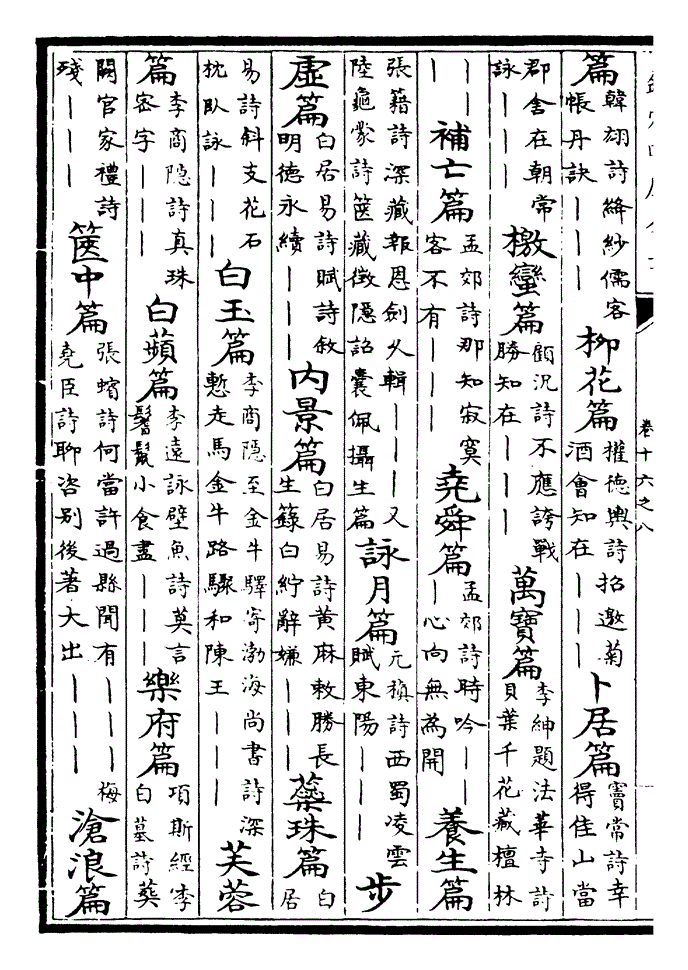 卷十六之八
篇
韓翃詩絳紗儒客
帳丹訣｜｜｜
柳花篇
權德輿詩招邀菊
酒會知在｜｜｜
卜居篇
竇常詩幸
得佳山當
郡舍在朝常
詠｜｜｜
檄蠻篇
顧況詩不應誇戰
勝知在｜｜｜
萬寶篇
李紳題法華寺詩
貝葉千花藏檀林
｜｜
｜
補亡篇
孟郊詩那知寂寞
客不有｜｜｜
堯舜篇
孟郊詩時吟｜｜
｜心向無為開
養生篇
張籍詩深藏報恩劍久輯｜｜｜又
陸龜蒙詩篋藏徵隱詔囊佩攝生篇
詠月篇
元稹詩西蜀凌雲
賦東陽｜｜｜
步
虛篇
白居易詩賦詩敘
明德永續｜｜｜
內景篇
白居易詩黃麻敕勝長
生籙白紵辭嫌｜｜｜
蘂珠篇
白
居
易詩斜支花石
枕臥詠｜｜｜
白玉篇
李商隱至金牛驛寄渤海尚書詩深
慙走馬金牛路驟和陳王｜｜｜
芙蓉
篇
李商隱詩真珠
密字｜｜｜
白蘋篇
李遠詠壁魚詩莫言
鬐鬣小食盡｜｜｜
樂府篇
項斯經李
白墓詩葬
闕官家禮詩
殘｜｜｜
篋中篇
張蠙詩何當許過縣聞有｜｜｜梅
堯臣詩聊咨別後著大出｜｜｜
滄浪篇